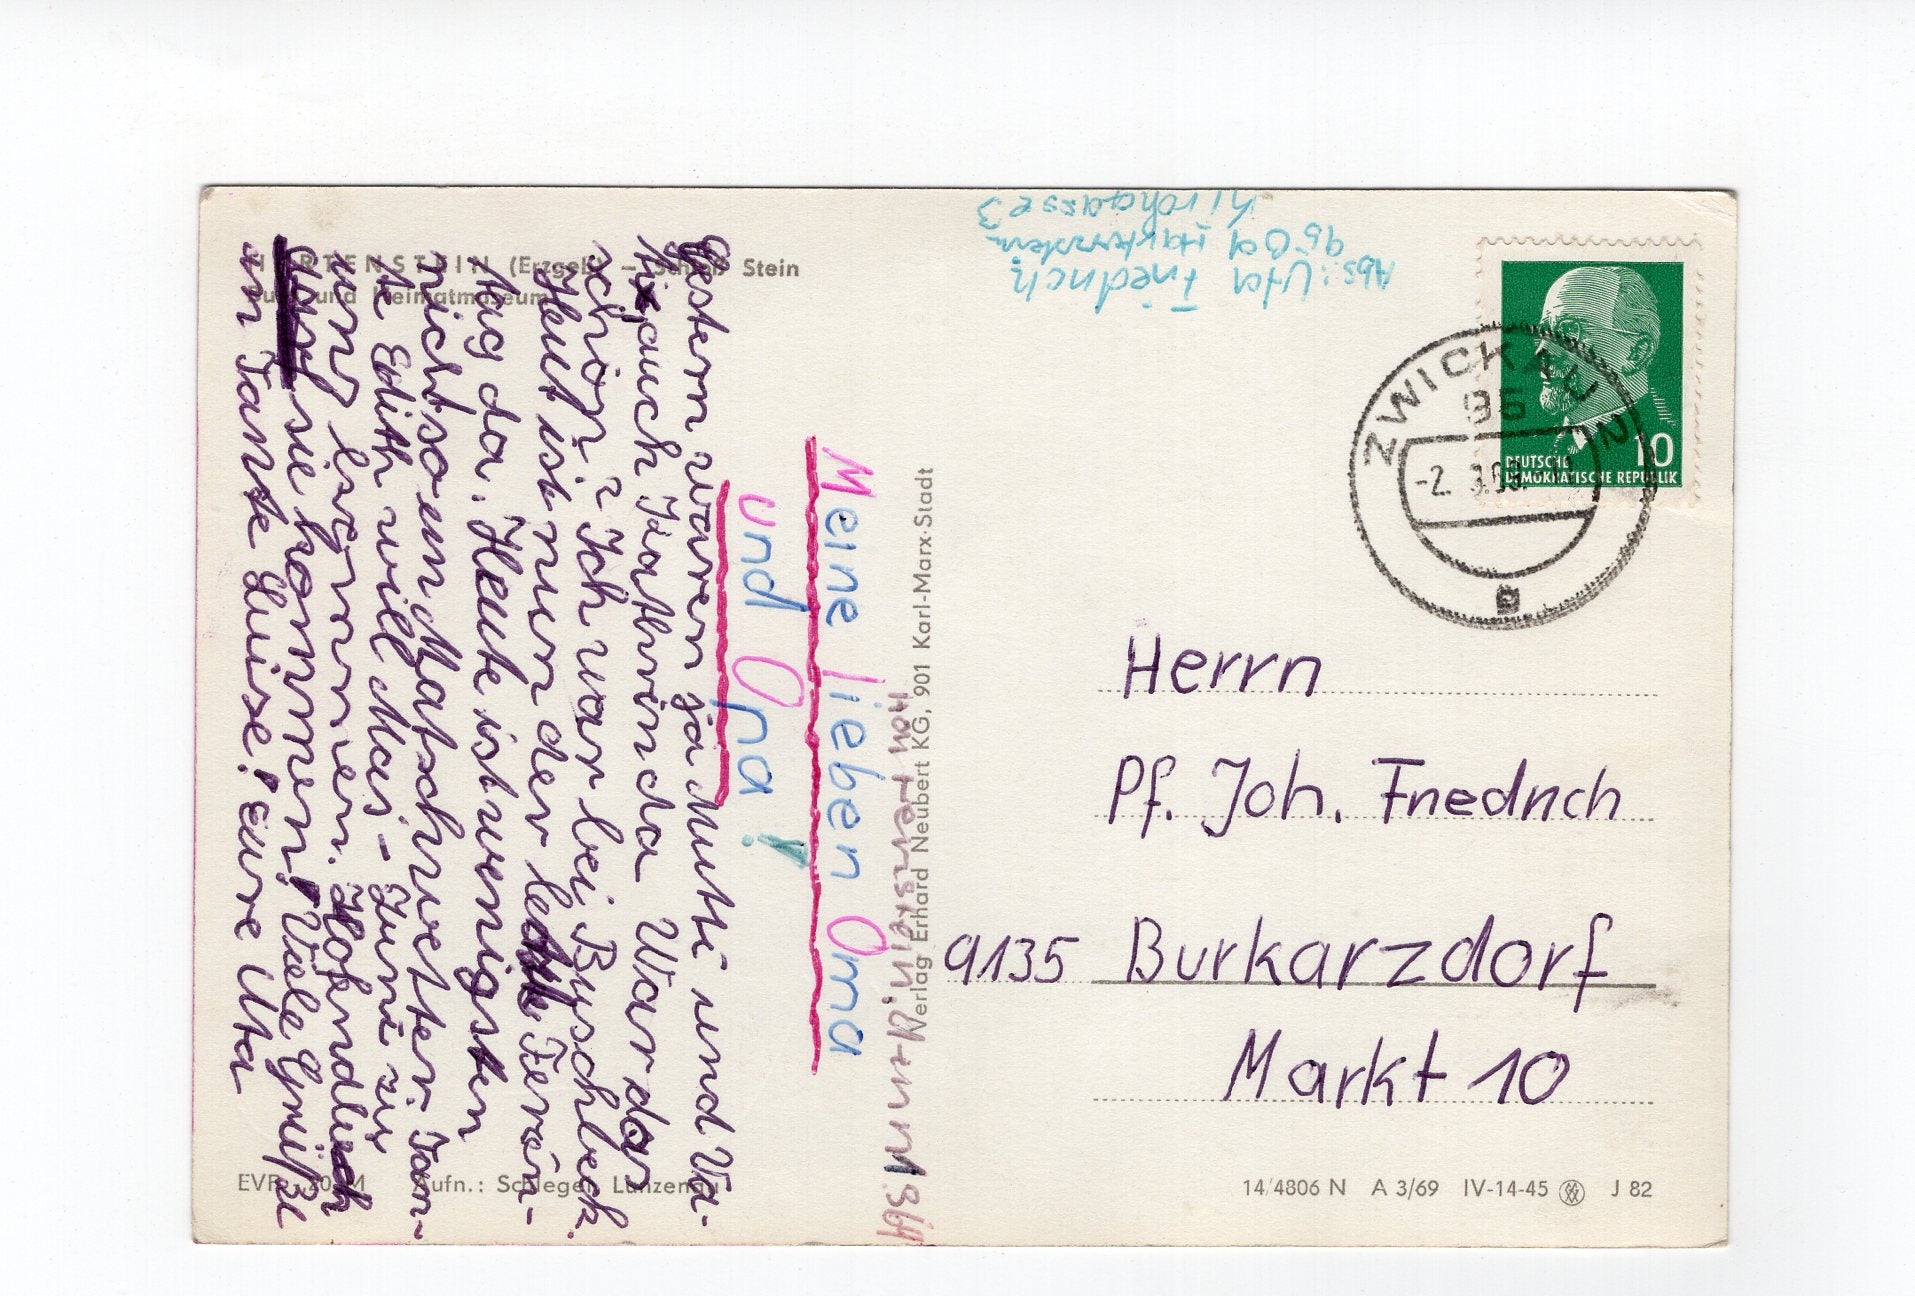 HARTENSTEIN (Erzgeb.) – Schloß Stein
Burg und Heimatmuseum
Hartenstein,
Meine lieben Oma
und Opa!
Gestern waren ja Mutti und Va-
ti auch Kathrin da. War das
schön? Ich war bei Byschleck.
Heut ist nun der letzte Ferien-
tag da. Heute ist wenigsten
nicht so ein Matschwetter. Tan-
te Edith will Mai-Juni zu
uns kommen. Hofendlich
sie kommen! Viele Grüße
an Tante Luise! eure Uta
Verlag Erhard Neubert KG, 901 Karl-Marx-Stadt
EVP -,20 M Aufn.: Schlegel, Lunzenau
Abs: Uta Friedrich
9504 Hartenstein
Kirchgasse 3
ZWICKAU 2
95
-2. 3.
DEUTSCHE
DEMOKRATISCHE REPUBLIK
10
Herrn
Pf. Joh. Friedrich
9135 Burkarzdorf
Markt 10
14/4806 N A 3/69 IV-14-45 J 82